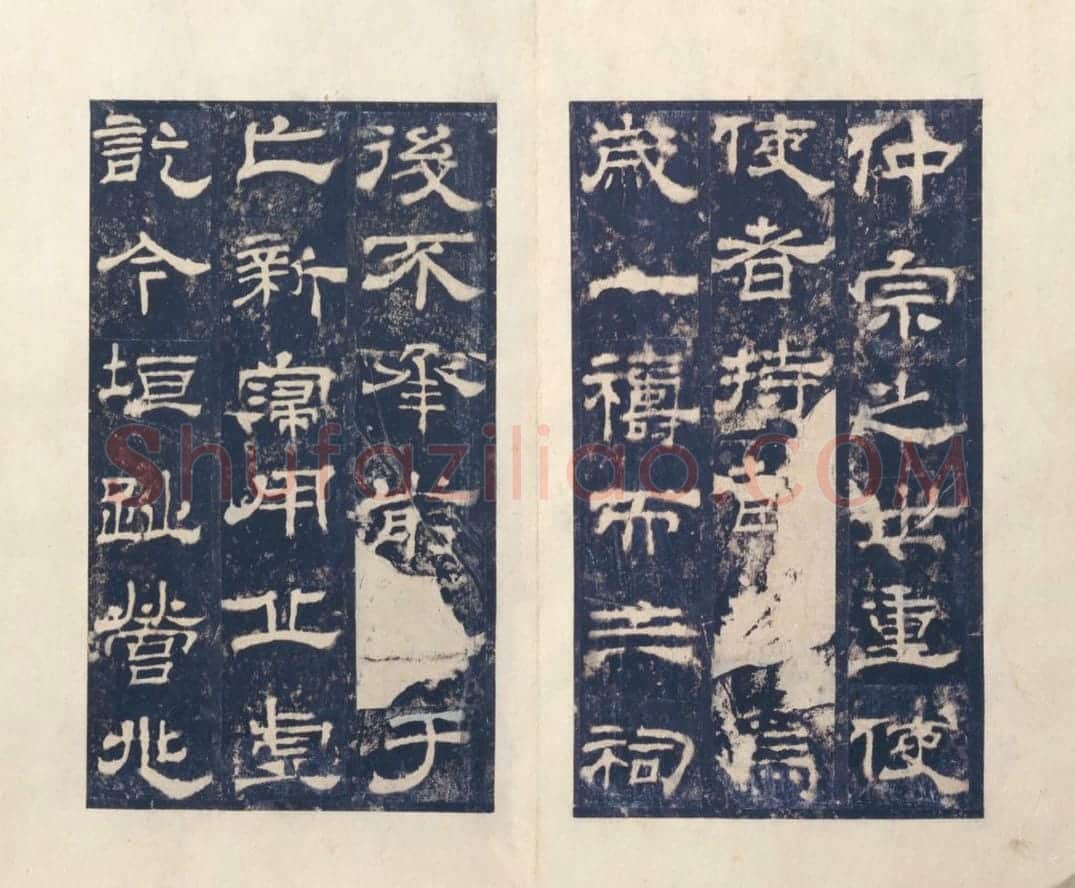 仲宗之世重使
使者持焉
歲一禱而三祠
後不承前于
亡新寖用丘虛
訖今垣趾營兆
Shufaziliao.COM